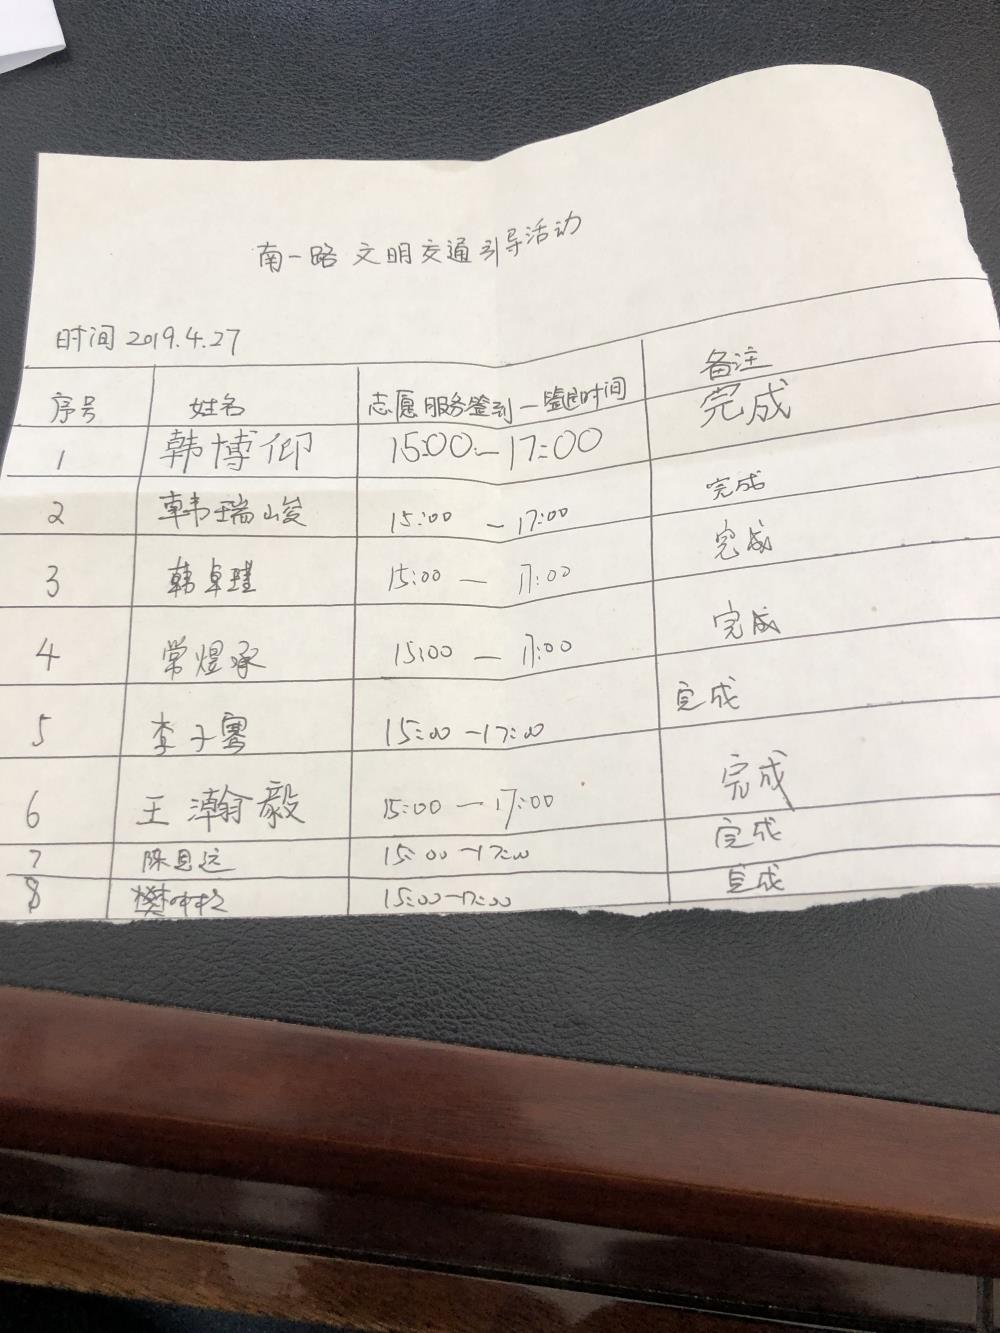 南一路 文明交通引导活动
时间 2019.4.27
序号 姓名 志愿服务签到—签退时间 备注
1 韩博仰 15:00—17:00 完成
2 韩瑞峻 15:00 — 17:00 完成
3 韩卓瑾 15:00 — 17:00 完成
4 常煜承 15:00 — 17:00 完成
5 李子骞 15:00—17:00 完成
6 王瀚毅 15:00—17:00 完成
7 陈思远 15:00—17:00 完成
8 樊 15:00—17:00 完成